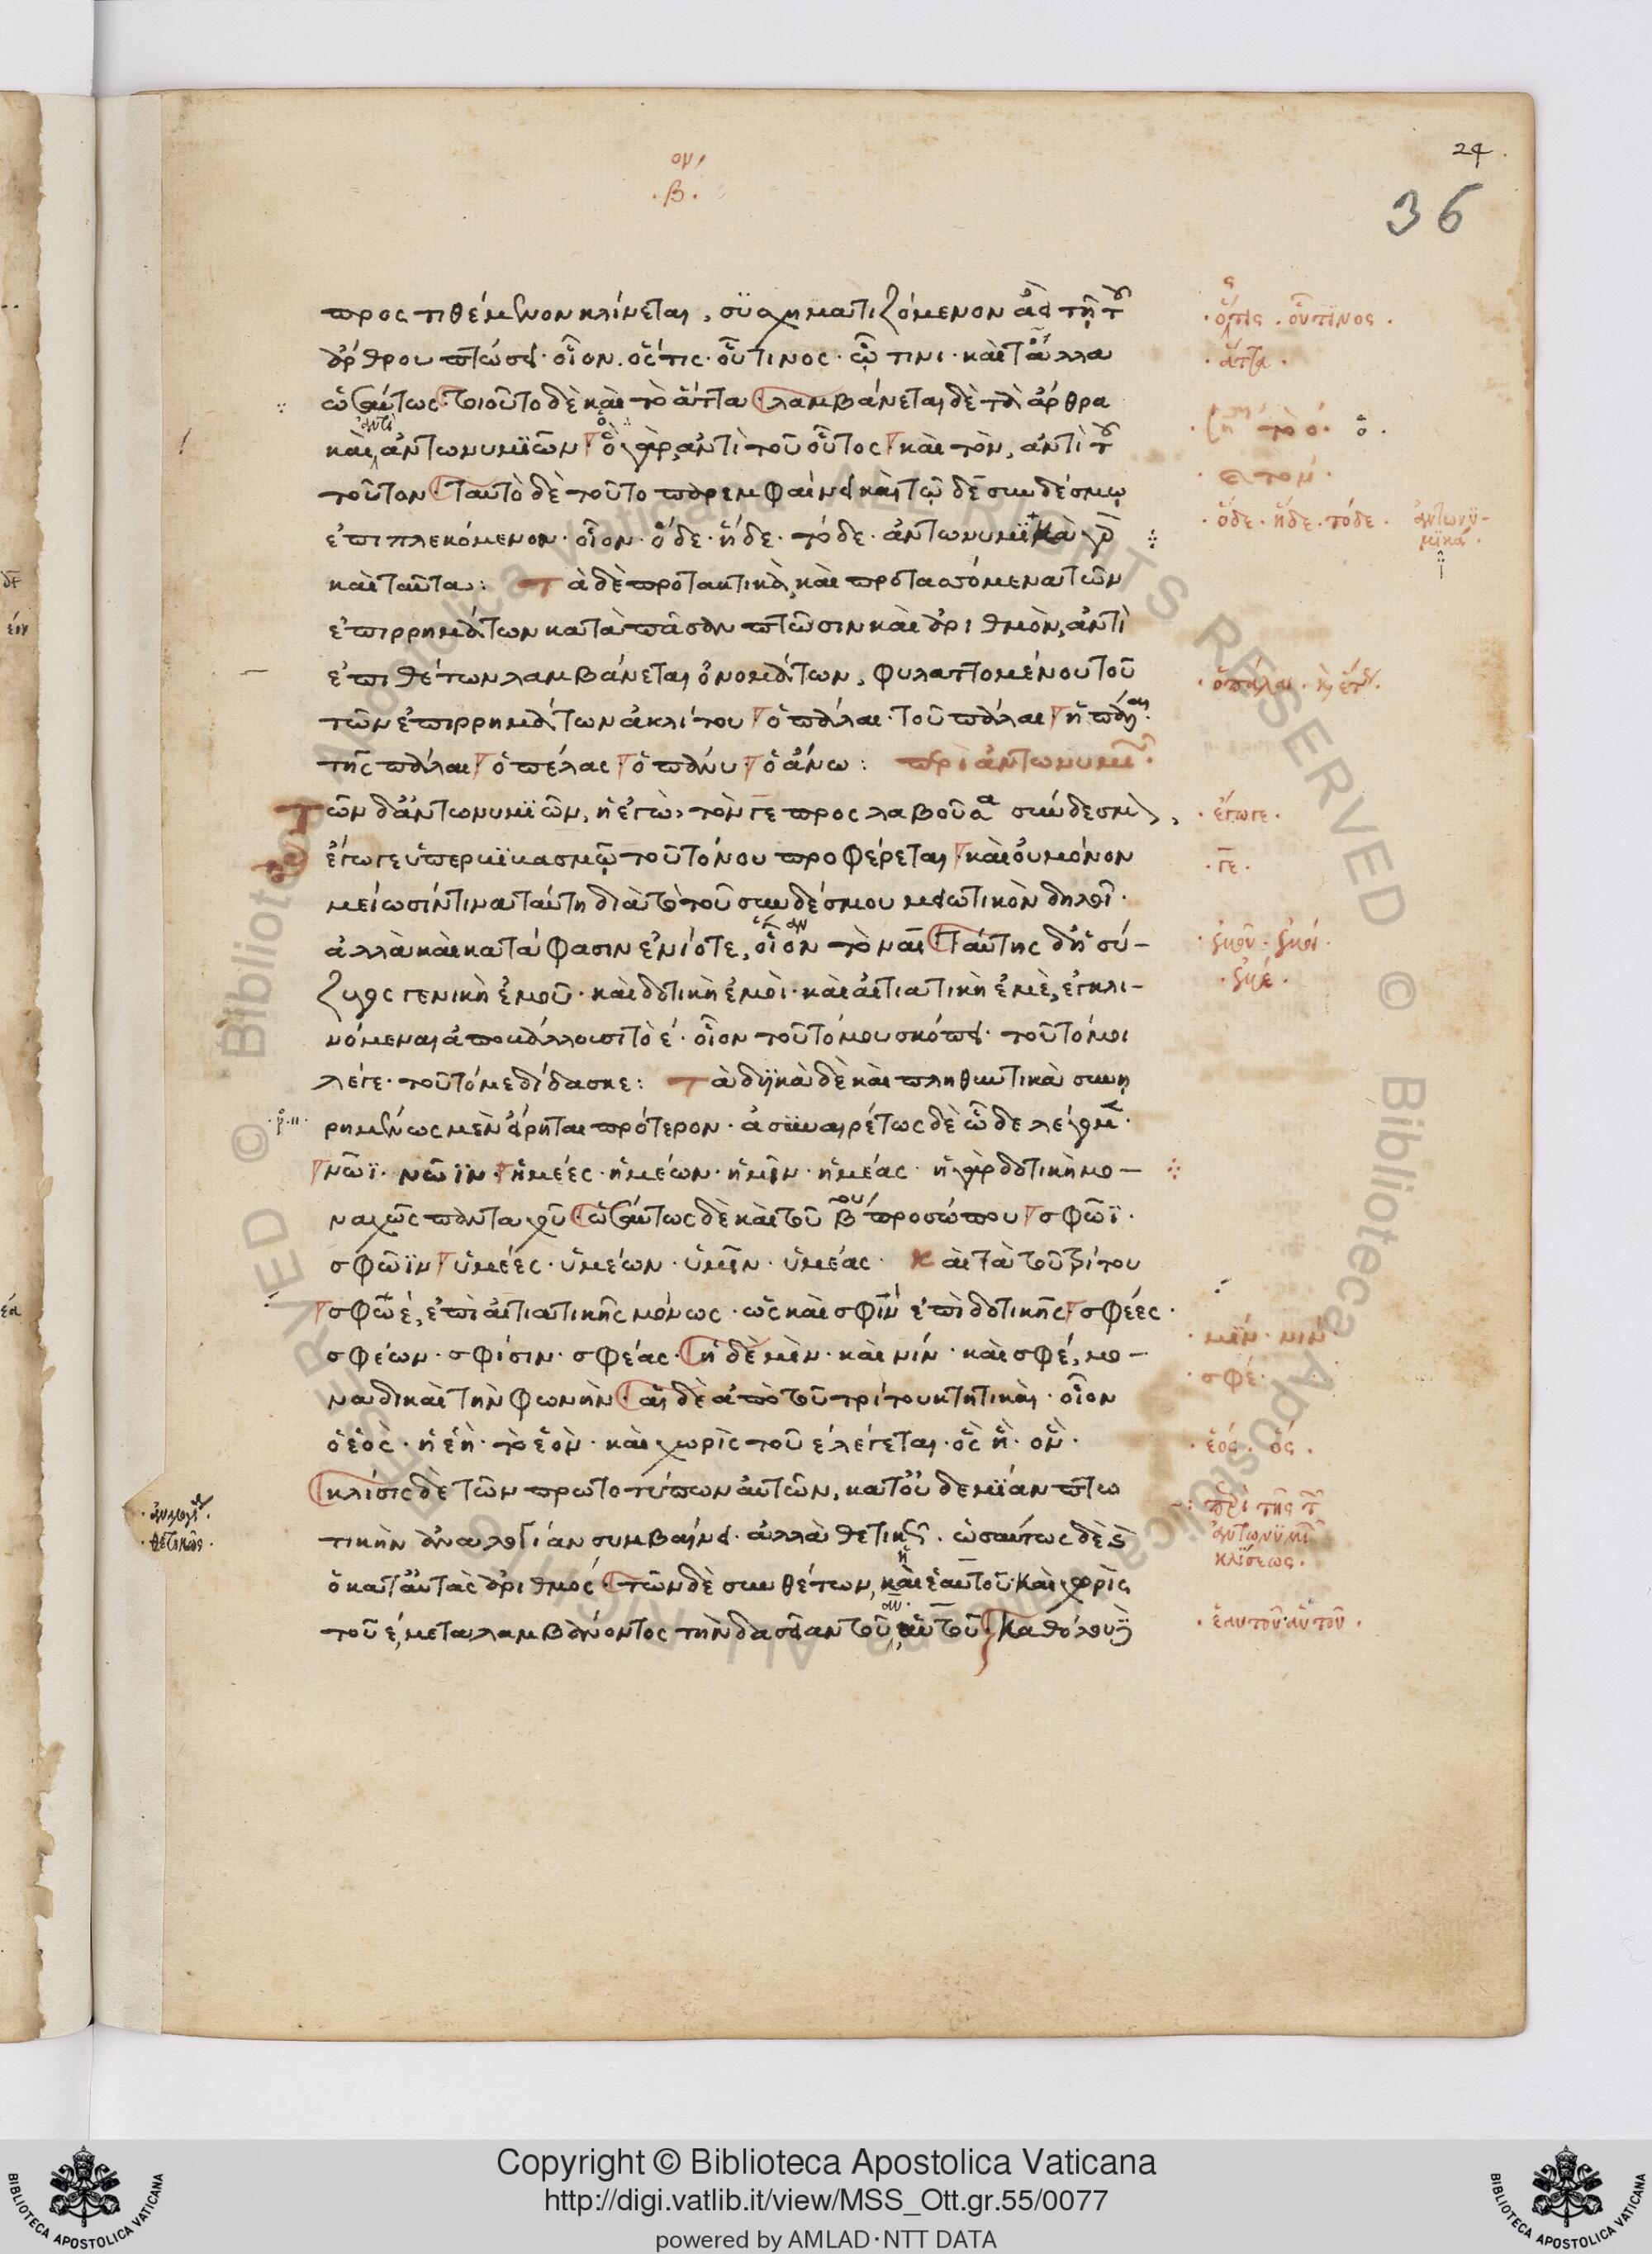 24
36
ον
.β.
προστιθέμενον κλίνεται, συσχηματιζόμενον ἀεὶ τῇ τοῦ
ἄρθρου πτώσει· οἷον. ὅστις· οὗτινος· ᾧτινι· καὶ τἆλλα
ὡσαύτως· τοιοῦτο δὲ καὶ τὸ ἅττα· λαμβάνεται δὲ τὰ ἄρθρα
καὶ ἀντὶ ἀντωνυμιῶν· ὃ γὰρ, ἀντὶ τοῦ οὗτος· καὶ τὸν, ἀντὶ τοῦ
τοῦτον· ταυτὸ δὲ τοῦτο παρεμφαίνει καὶ τῷ δὲ συνδέσμῳ
ἐπιπλεκόμενον· οἷον· ὅδε· ἥδε· τόδε· ἀντωνυμικὰ γὰρ
καὶ ταῦτα: Τὰ δὲ προτακτικὰ, καὶ προτασσόμενα τῶν
ἐπιρρημάτων κατὰ πᾶσαν πτῶσιν καὶ ἀριθμὸν, ἀντὶ
ἐπιθέτων λαμβάνεται ὀνομάτων, φυλαττομένου τοῦ
τῶν ἐπιρρημάτων ἀκλίτου· ὁ πάλαι· τοῦ πάλαι· ἡ πάλαι·
τῆς πάλαι· ὁ πέλας· ὁ πάνυ· ὁ ἄνω: περὶ ἀντωνυμι
Τῶν δ' ἀντωνυμιῶν, ἡ ἐγὼ, τὸν γε προσλαβοῦσα σύνδεσμον,
ἔγωγε ὑπερβιβασμῷ τοῦ τόνου προφέρεται· καὶ οὐ μόνον
μείωσίν τινα ταύτῃ διὰ τὸ τοῦ συνδέσμου μειωτικὸν δηλοῖ·
ἀλλὰ καὶ κατάφασιν ἐνίοτε, οἷον τὸ ναί· Ταύτης δ' ἡ σύ-
ζυγος γενικὴ ἐμοῦ· καὶ δοτικὴ ἐμοὶ· καὶ αἰτιατικὴ ἐμὲ, ἐγκλι-
νόμεναι ἀποβάλλουσι τὸ έ· οἷον τοῦτό μου σκόπει· τοῦτό μοι
λέγε· τοῦτό με δίδασκε: Τὰ δυϊκὰ δὲ καὶ πληθυντικὰ συνῃ
ρημένως μὲν εἴρηται πρότερον· ἀσυναιρέτως δὲ ὧδε λέγομεν·
νῶϊ· νῶϊν· ἡμέες· ἡμέων· ἡμῖν· ἡμέας· ἡ γὰρ δοτικὴ μο-
ναχῶς πανταχοῦ· ὡσαύτως δὲ καὶ τοῦ βου προσώπου· σφῶϊ·
σφῶϊν· ὑμέες· ὑμέων· ὑμῖν· ὑμέας· Καὶ τὰ τοῦ τρίτου
σφωέ, ἐπὶ αἰτιατικῆς μόνως· ὡς καὶ σφὶν ἐπὶ δοτικῆς· σφέες·
σφέων· σφίσιν· σφέας· ἡ δὲ μὶν· καὶ νίν· καὶ σφέ, μο-
ναδικαὶ τὴν φωνὴν· αἱ δὲ ἀπὸ τοῦ τρίτου κτητικαὶ· οἷον
ὁ ἑὸς· ἡ ἑὴ· τὸ ἑὸν· καὶ χωρὶς τοῦ ε λέγεται· ὃς ἣ· ὃν·
κλίσις δὲ τῶν πρωτοτύπων αὐτῶν, κατ' οὐδεμίαν πτω
τικὴν ἀναλογίαν συμβαίνει· ἀλλὰ θετικῶς· ὡσαύτως δὲ καὶ
ὁ κατ' αὐτὰς ἀριθμός· τῶν δὲ συνθέτων, καὶ ἡ ἑαυτοῦ· καὶ χωρὶς
τοῦ ε, μεταλαμβάνοντος τὴν δασεῖαν τοῦ αυ, αὑτοῦ· Καθόλου
.ὅστις. οὗτινος.
.ἅττα.
τὸ ὁ. ὃ.
τον.
.ὅδε. ἥδε. τόδε. ἀντωνυ-
μικά.
.ἔγωγε.
.γε.
.ἐμοῦ. ἐμοί.
.ἐμέ.
.μίν. νίν.
.σφέ.
.ἑός. ὅς.
περὶ τῆς τῶν
ἀντωνυμι
κλίσεως.
.ἑαυτοῦ. αὑτοῦ.
.θετικῶς.
Copyright © Biblioteca Apostolica Vaticana
http://digi.vatlib.it/view/MSS_Ott.gr.55/0077
powered by AMLAD·NTT DATA